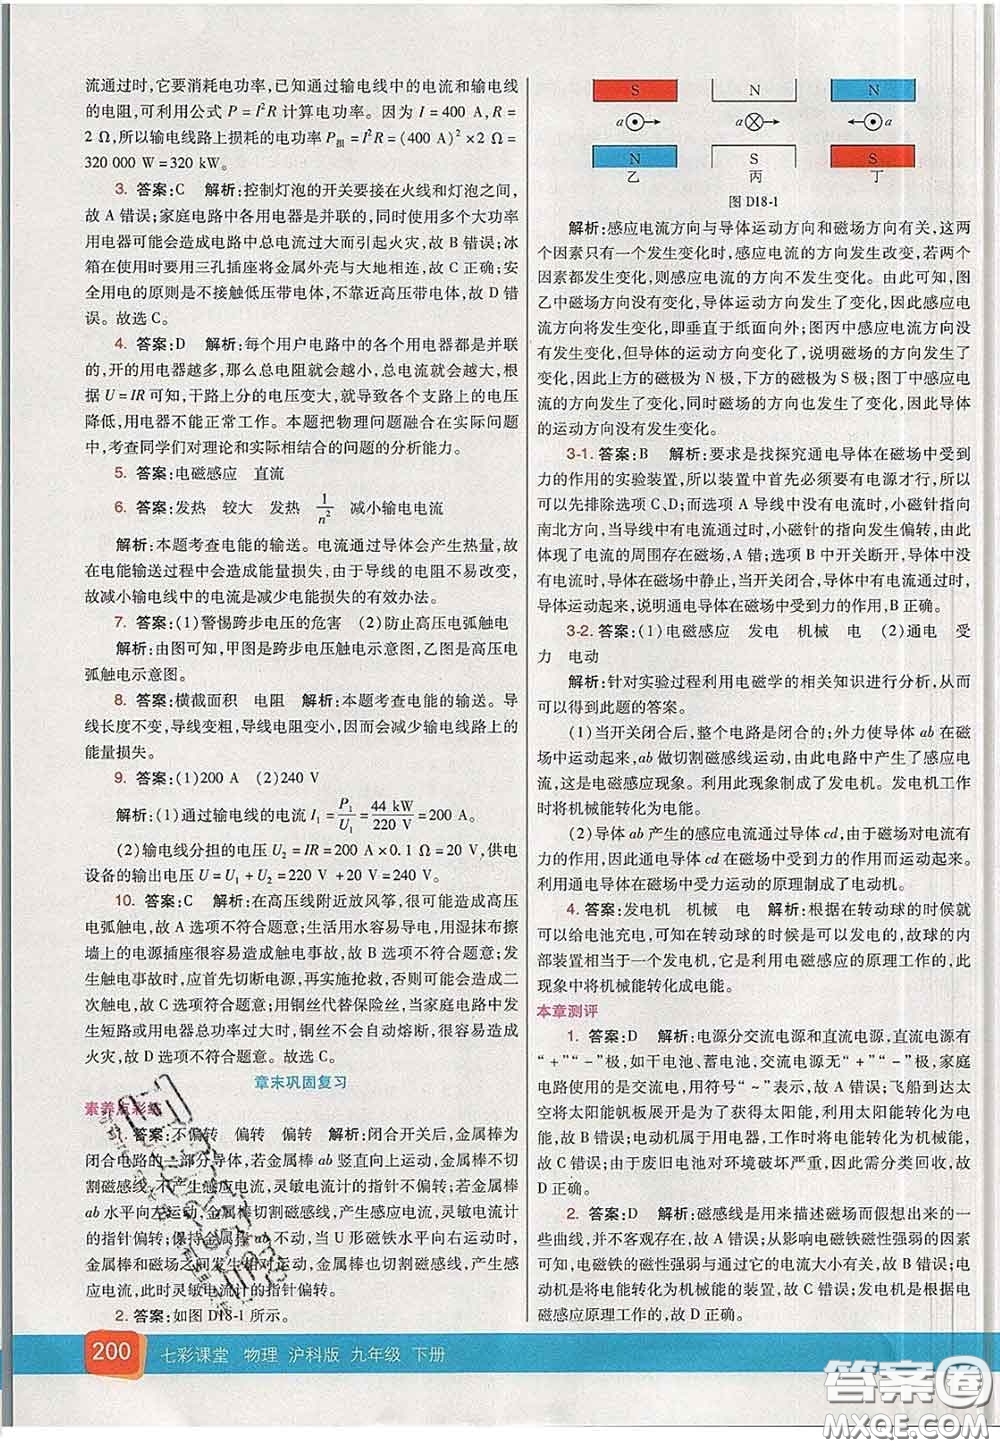 流通过时,它要消耗电功率,已知通过输电线中的电流和输电线
的电阻,可利用公式 P = I²R 计算电功率。因为 I = 400 A, R =
2 Ω,所以输电线路上损耗的电功率 P损 = I²R = (400 A)² × 2 Ω =
320 000 W = 320 kW。
3. 答案:C 解析:控制灯泡的开关要接在火线和灯泡之间,
故 A 错误;家庭电路中各用电器是并联的,同时使用多个大功率
用电器可能会造成电路中总电流过大引起火灾,故 B 错误;冰
箱在使用时要用三孔插座将金属外壳与大地相连,故 C 正确;安
全用电的原则是不接触低压带电体,不靠近高压带电体,故 D 错
误。故选 C。
4. 答案:D 解析:每个用户电路中的各个用电器都是并联
的,开的用电器越多,那么总电阻就会越小,总电流就会越大,根
据 U = IR 可知,干路上分的电压变大,就导致各个支路上的电压
降低,用电器不能正常工作。本题把物理问题融合在实际问题
中,考查同学们对理论和实际相结合的问题的分析能力。
5. 答案:电磁感应 直流
6. 答案:发热 较大 发热 1/n² 减小输电电流
解析:本题考查电能的输送。电流通过导体会产生热量,故
在电能输送过程中会造成能量损失,由于导线的电阻不易改变,
故减小输电线中的电流是减少电能损失的有效办法。
7. 答案:(1)警惕跨步电压的危害 (2)防止高压电弧触电
解析:由图可知,甲图是跨步电压触电示意图,乙图是高压电
弧触电示意图。
8. 答案:横截面积 电阻 解析:本题考查电能的输送。导
线长度不变,导线变粗,导线电阻变小,因而会减少输电线路上的
能量损失。
9. 答案:(1)200 A (2)240 V
解析:(1)通过输电线的电流 I₁ = P₁/U₁ = 44 kW/220 V = 200 A。
(2)输电线分担的电压 U₂ = IR = 200 A × 0.1 Ω = 20 V,供电
设备的输出电压 U = U₁ + U₂ = 220 V + 20 V = 240 V。
10. 答案:C 解析:在高压线附近放风筝,很容易造成高压
电弧触电,故 A 选项不符合题意;生活用水容易导电,用湿抹布擦
墙上的电源插座很容易造成触电事故,故 B 选项不符合题意;发
生触电事故时,应首先切断电源,再实施抢救,否则容易造成二
次触电,故 C 选项符合题意;用铜丝代替保险丝,当家庭电路中发
生短路或用电器总功率过大时,铜丝不会自动熔断,很容易造成
火灾,故 D 选项不符合题意。故选 C。
章末巩固复习
素养点彩练
1. 答案:不偏转 偏转 偏转 解析:闭合开关后,金属棒为
闭合电路的一部分导体,若金属棒 ab 竖直向上运动,金属棒不切
割磁感线,不产生感应电流,灵敏电流计的指针不偏转;若金属棒
ab 水平向左运动,金属棒切割磁感线,产生感应电流,灵敏电流计
的指针偏转;保持金属棒 ab 不动,当 U 形磁铁水平向右运动时,
金属棒和磁场之间发生相对运动,金属棒也切割磁感线,产生感
应电流,此时灵敏电流计的指针偏转。
2. 答案:如图 D18-1 所示。
S N N
a a a
N S S
乙 丙 丁
图 D18-1
解析:感应电流方向与导体运动方向和磁场方向有关,这两
个因素只有一个发生变化时,感应电流的方向发生改变,若两个
因素都发生变化,则感应电流的方向不发生变化。由此可知,图
乙中磁场方向没有变化,导体运动方向发生了变化,因此感应电
流方向将发生变化,即垂直于纸面向外;图丙中感应电流方向没
有发生变化,但导体的运动方向变化了,说明磁场的方向发生了
变化,因此上方的磁极为 N 极,下方的磁极为 S 极;图丁中感应电
流的方向发生了变化,同时磁场的方向也发生了变化,因此导体
的运动方向没有发生变化。
3-1. 答案:B 解析:要求是找探究通电导体在磁场中受到
力的作用的实验装置,所以装置中首先必须要有电源才行,所以
可以先排除选项 C、D;而选项 A 导线中没有电流时,小磁针指向
南北方向,当导线中有电流通过时,小磁针的指向发生偏转,由此
体现了电流的周围存在磁场,A 错;选项 B 中开关断开,导体中没
有电流,导体在磁场中静止,当开关闭合,导体中有电流通过时,
导体运动起来,说明通电导体在磁场中受到力的作用,B 正确。
3-2. 答案:(1)电磁感应 发电 机械 电 (2)通电 受
力 电动
解析:针对实验过程利用电磁学的相关知识进行分析,从而
可以得到此题的答案。
(1)当开关闭合后,整个电路是闭合的;外力使导体 ab 在磁
场中运动起来,ab 做切割磁感线运动,由此电路中产生了感应电
流,这是电磁感应现象。利用此现象制成了发电机。发电机工作
时将机械能转化为电能。
(2)导体 ab 产生的感应电流通过导体 cd,由于磁场对电流有
力的作用,因此通电导体 cd 在磁场中受到力的作用而运动起来。
利用通电导体在磁场中受力运动的原理制成了电动机。
4. 答案:发电机 机械 电 解析:根据在转动球的时候就
可以给电池充电,可知在转动球的时候是可以发电的,故球的内
部装置相当于一个发电机,它是利用电磁感应的原理工作的,此
现象中将机械能转化成电能。
本章测评
1. 答案:D 解析:电源分交流电源和直流电源,直流电源有
“+”“-”极,如干电池、蓄电池,交流电源无“+”“-”极,家庭
电路使用的是交流电,用符号“~”表示,故 A 错误;飞船到达太
空将太阳能帆板展开是为了获得太阳能,利用太阳能转化为电能,
故 B 错误;电动机属于用电器,工作时将电能转化为机械能,
故 C 错误;由于废旧电池对环境破坏严重,因此需分类回收,
故 D 正确。
2. 答案:D 解析:磁感线是用来描述磁场而假想出来的一
些曲线,并不客观存在,故 A 错误;从影响电磁铁磁性强弱的因素
可知,电磁铁的磁性强弱与通过它的电流大小有关,故 B 错误;电
动机是将电能转化为机械能的装置,故 C 错误;发电机是根据电
磁感应原理工作的,故 D 正确。
200 七彩课堂 物理 沪科版 九年级 下册
答案圈
MXQE.COM